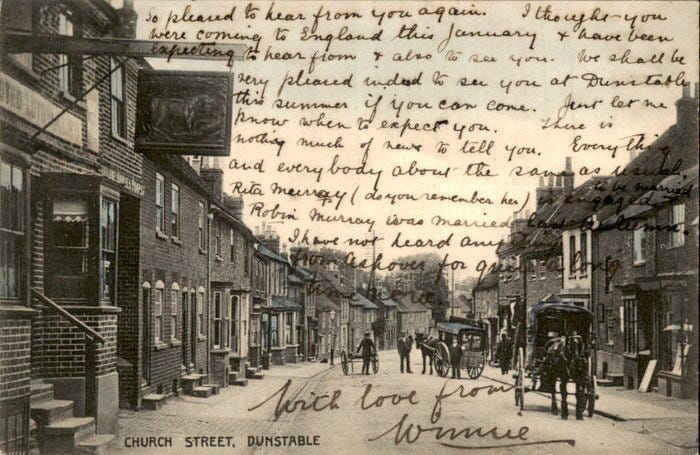 So pleased to hear from you again. I thought you
were coming to England this January & have been
expecting to hear from & also to see you. We shall be
very pleased indeed to see you at Dunstable
this summer if you can come. Just let me
know when to expect you. There is
nothing much of news to tell you. Everything
and everybody about the same as usual.
Rita Murray (do you remember her) is engaged to be married
Robin Murray was married last autumn.
I have not heard any
from Ashover for quite a long
time now
With love from
Winnie
CHURCH STREET, DUNSTABLE